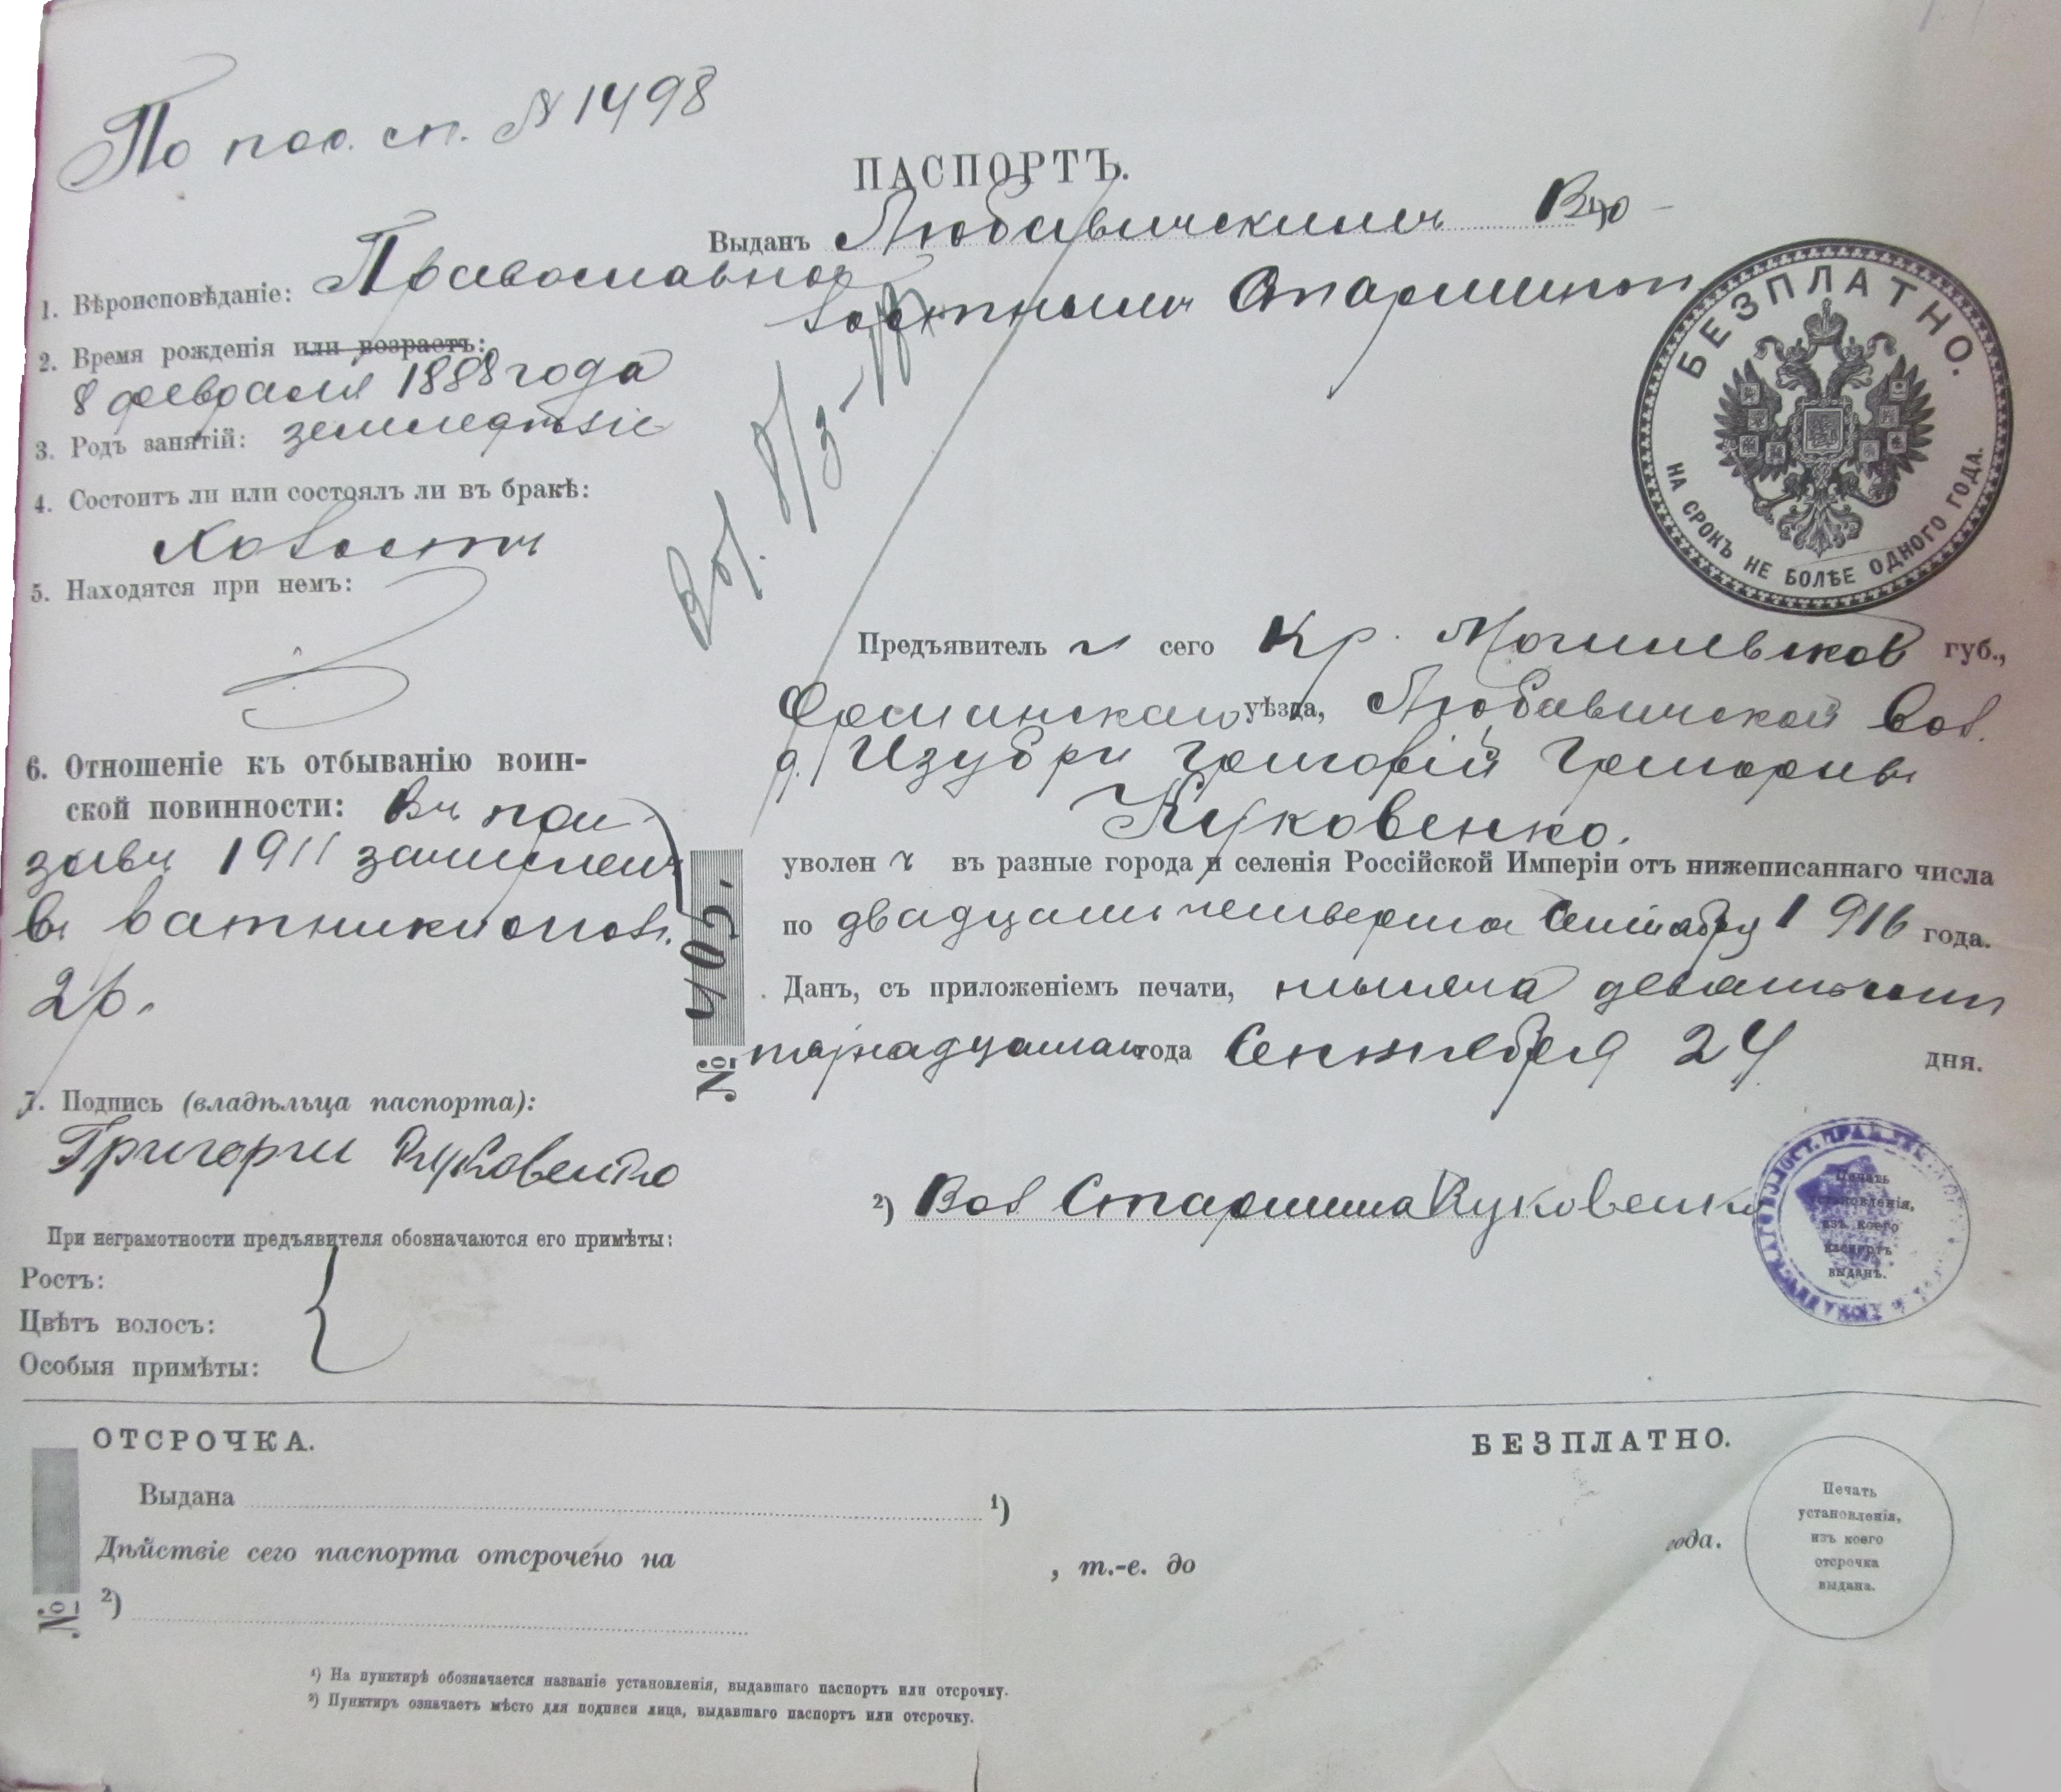 По пос. сп. № 1498
ПАСПОРТЪ.
Выданъ Любавичскимъ Вло-
лостнымъ Старшиной
БЕЗПЛАТНО.
НА СРОКЪ НЕ БОЛѢЕ ОДНОГО ГОДА.
1. Вѣроисповѣданіе: Православное
2. Время рожденія или возрастъ:
8 февраля 1888 года
3. Родъ занятій: земледѣліе
4. Состоитъ ли или состоялъ ли въ бракѣ:
Холостъ
5. Находятся при немъ:
6. Отношеніе къ отбыванію воин-
ской повинности: Въ при
зывъ 1911 зачисленъ
въ ратники ополч.
2 р.
7. Подпись (владѣльца паспорта):
Григорги Куковенко
При неграмотности предъявителя обозначаются его примѣты:
Ростъ:
Цвѣтъ волосъ:
Особыя примѣты:
№ 405.
Предъявитель ь сего Кр. Могилевской губ.,
уѣзда, Любавичской вол.
д. Изубри Григорій Григорьевъ
Куковенко.
уволен ъ въ разные города и селенія Россійской Имперіи отъ нижеписаннаго числа
по двадцать четвертое Сентября 1916 года.
Данъ, съ приложеніемъ печати, тысяча девятьсотъ
года Сентября 24 дня.
2) Вол Старшина Куковенко
Печать
установленія,
изъ коего
паспортъ
выданъ.
ОТСРОЧКА.
БЕЗПЛАТНО.
Выдана 1)
Дѣйствіе сего паспорта отсрочено на , т.-е. до года.
№ 2)
Печать
установленія,
изъ коего
отсрочка
выдана.
1) На пунктирѣ обозначается названіе установленія, выдавшаго паспортъ или отсрочку.
2) Пунктиръ означаетъ мѣсто для подписи лица, выдавшаго паспортъ или отсрочку.